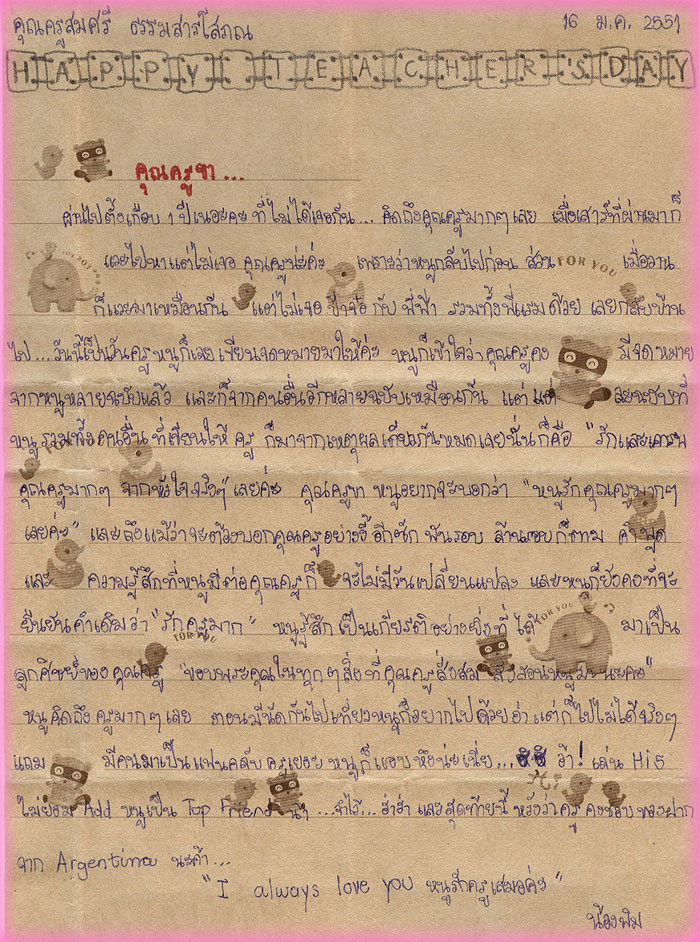 คุณครูสมศรี ธรรมสารโสภณ 16 ม.ค. 2551
HAPPY TEACHER'SDAY
คุณครูขา...
ผ่านไปตั้งเกือบ 1 ปีเนอะคะ ที่ไม่ได้เจอกัน... คิดถึงคุณครูมากๆเลย เมื่อเสาร์ที่ผ่านมาก็
แวะไปหาแต่ไม่เจอ คุณครูน่ะค่ะ เพราะว่าหนูกลับไปก่อน ส่วน FOR YOU เมื่อวาน
ก็แวะมาเหมือนกัน แต่ไม่เจอ ป้าจ๋อ กับ พี่ฟ้า รวมทั้งพี่แรมด้วย เลยกลับบ้าน
ไป...วันนี้เป็นวันครู หนูก็เลยเขียนจดหมายมาให้ค่ะ หนูก็เข้าใจว่าคุณครูคง มีจดหมาย
จากหนูหลายฉบับแล้ว และก็จากคนอื่นอีกหลายฉบับเหมือนกัน แต่ แต่ ละฉบับที่
หนู รวมทั้งคนอื่น ที่เขียนให้ ครู ก็มาจากเหตุผลเดียวกันหมดเลยนั่น ก็คือ "รักและเคารพ
คุณครูมากๆ จากหัวใจจริงๆ" เลยค่ะ คุณครูขา หนูอยากจะบอกว่า "หนูรักคุณครูมากๆ
เลยค่ะ" และถึงแม้ว่าจะต้องบอกคุณครูอย่างงี้ อีกซัก พันรอบ ล้านรอบก็ตาม คำพูด
และ ความรู้สึกที่หนูมีต่อคุณครูก็ จะไม่มีวันเปลี่ยนแปลง และหนูก็ยังคงที่จะ
ยืนยันคำเดิมว่า "รักครูมาก" หนูรู้สึกเป็นเกียรติอย่างยิ่งที่ ได้ มาเป็น
FOR YOU FOR YOU
ลูกศิษย์ของคุณครู "ขอบพระคุณในทุกๆสิ่งที่คุณครูสั่งสม สั่งสอนหนูมานะคะ"
หนูคิดถึงครูมากๆเลย ตอนมีนัดกันไปเที่ยวหนูก็อยากไปด้วยอ่ะ แต่ก็ไปไม่ได้จริงๆ
แถม มีคนมาเป็นแฟนคลับ ครูเยอะ หนูก็แอบหึงน่ะเนี่ย... ว้า! เล่น Hi5
ไม่ยอม Add หนูเป็น Top Friend น้า ... ฮ่าฮ่า และสุดท้ายนี้ หวังว่าครู คงชอบ ของฝาก
จาก Argentina นะค้า...
"I always love you หนูรักครูเสมอค่ะ"
น้องพิม